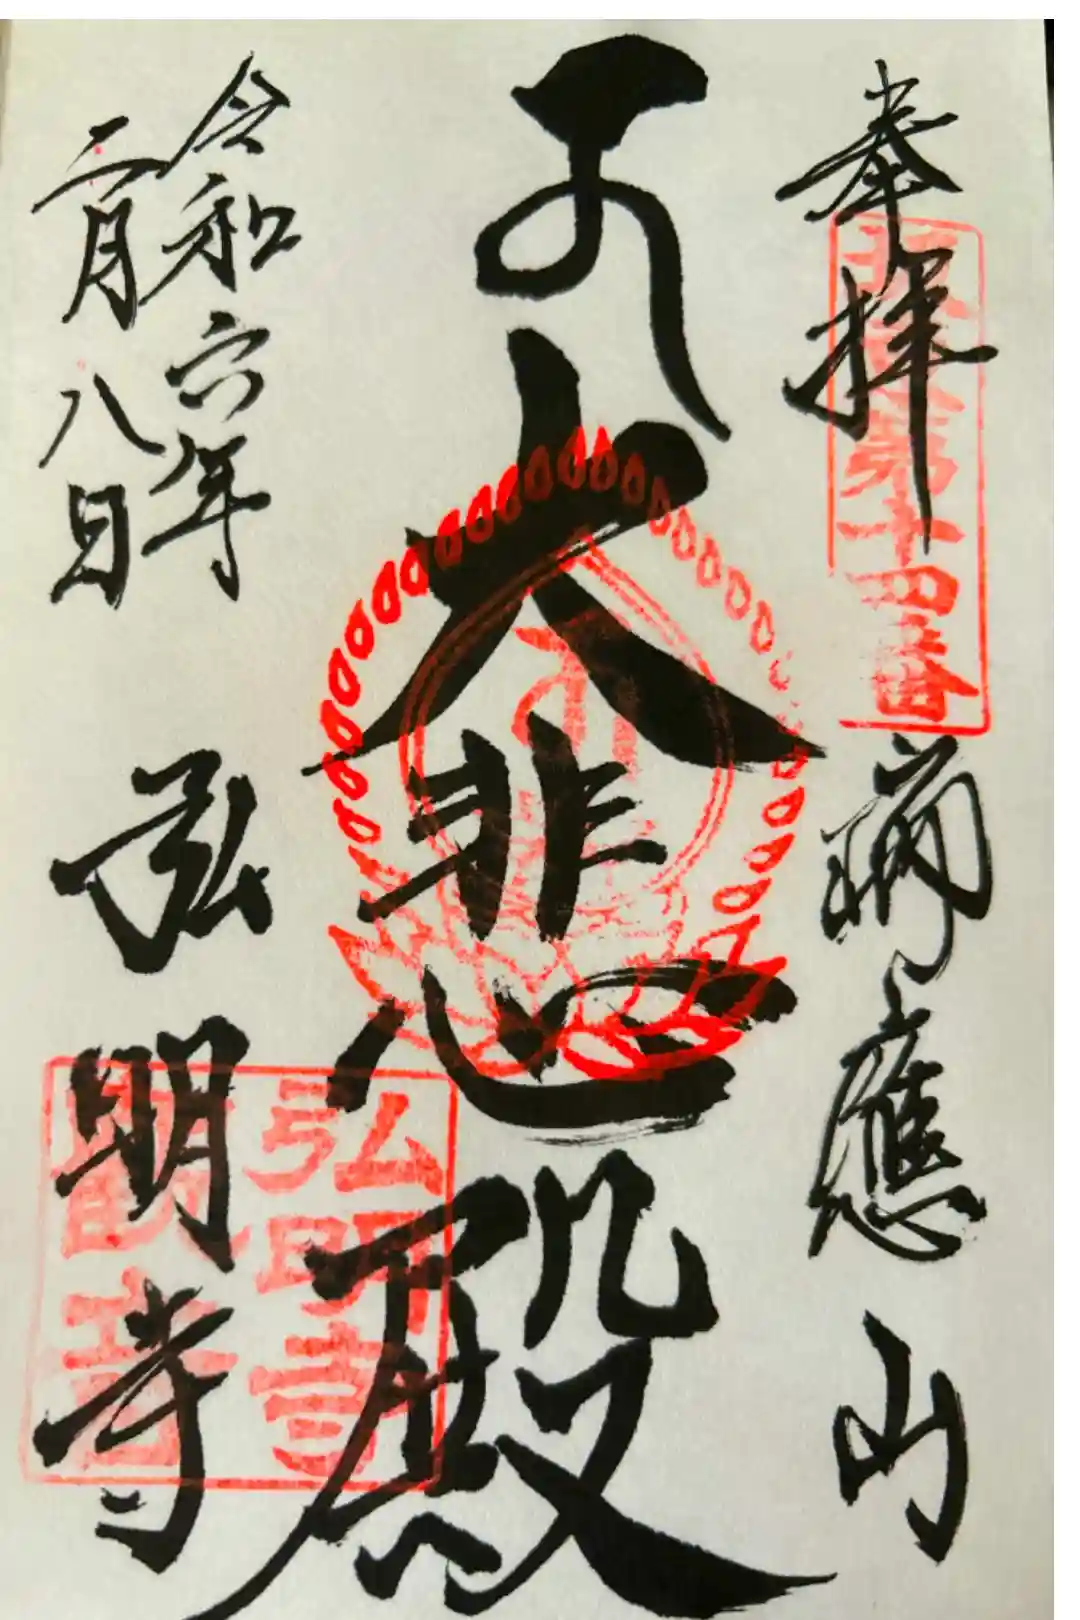 奉拝
坂東第十四番
瑞應山
大悲殿
令和六年
二月八日
弘明寺
弘明寺
観音